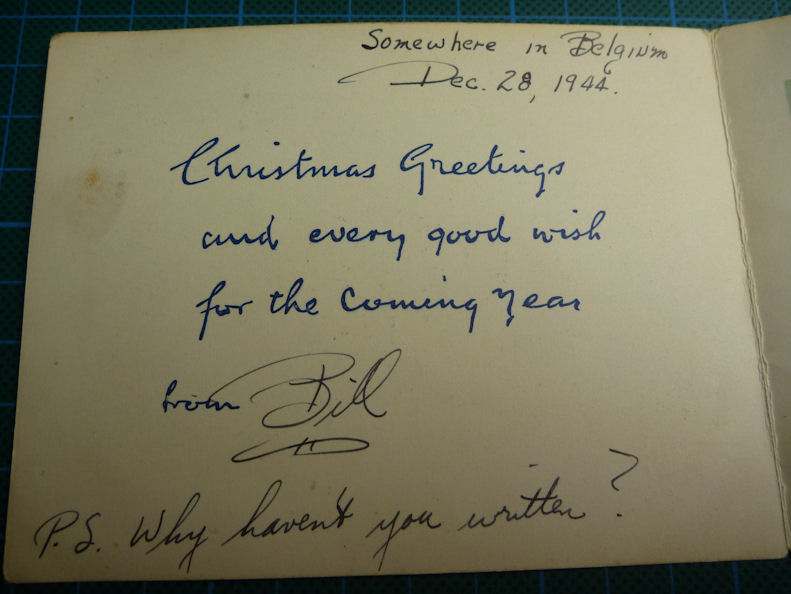 Somewhere in Belgium
Dec. 28, 1944.
Christmas Greetings
and every good wish
for the Coming Year
from Bill
P.S. Why haven't you written?